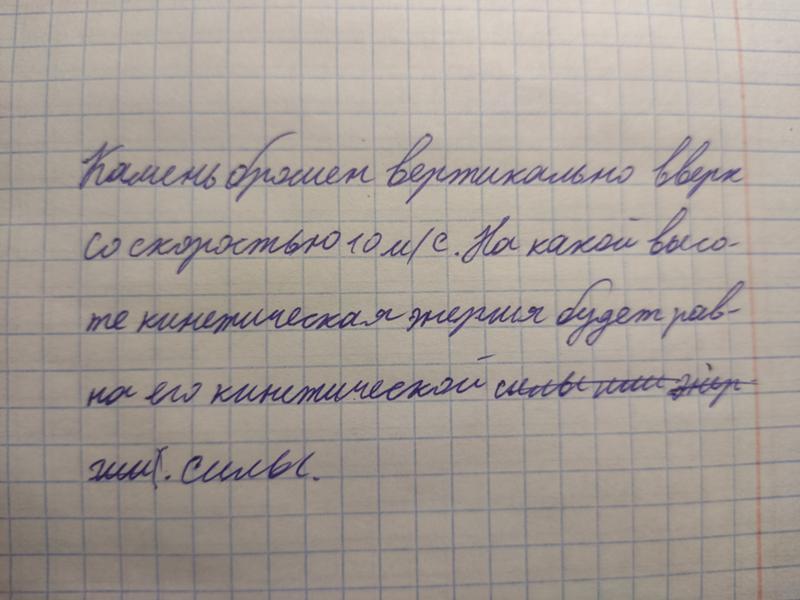 Камень брошен вертикально вверх
со скоростью 10 м/с. На какой высо-
те кинетическая энергия будет рав-
на его кинетической силы или энер-
гии. силы.